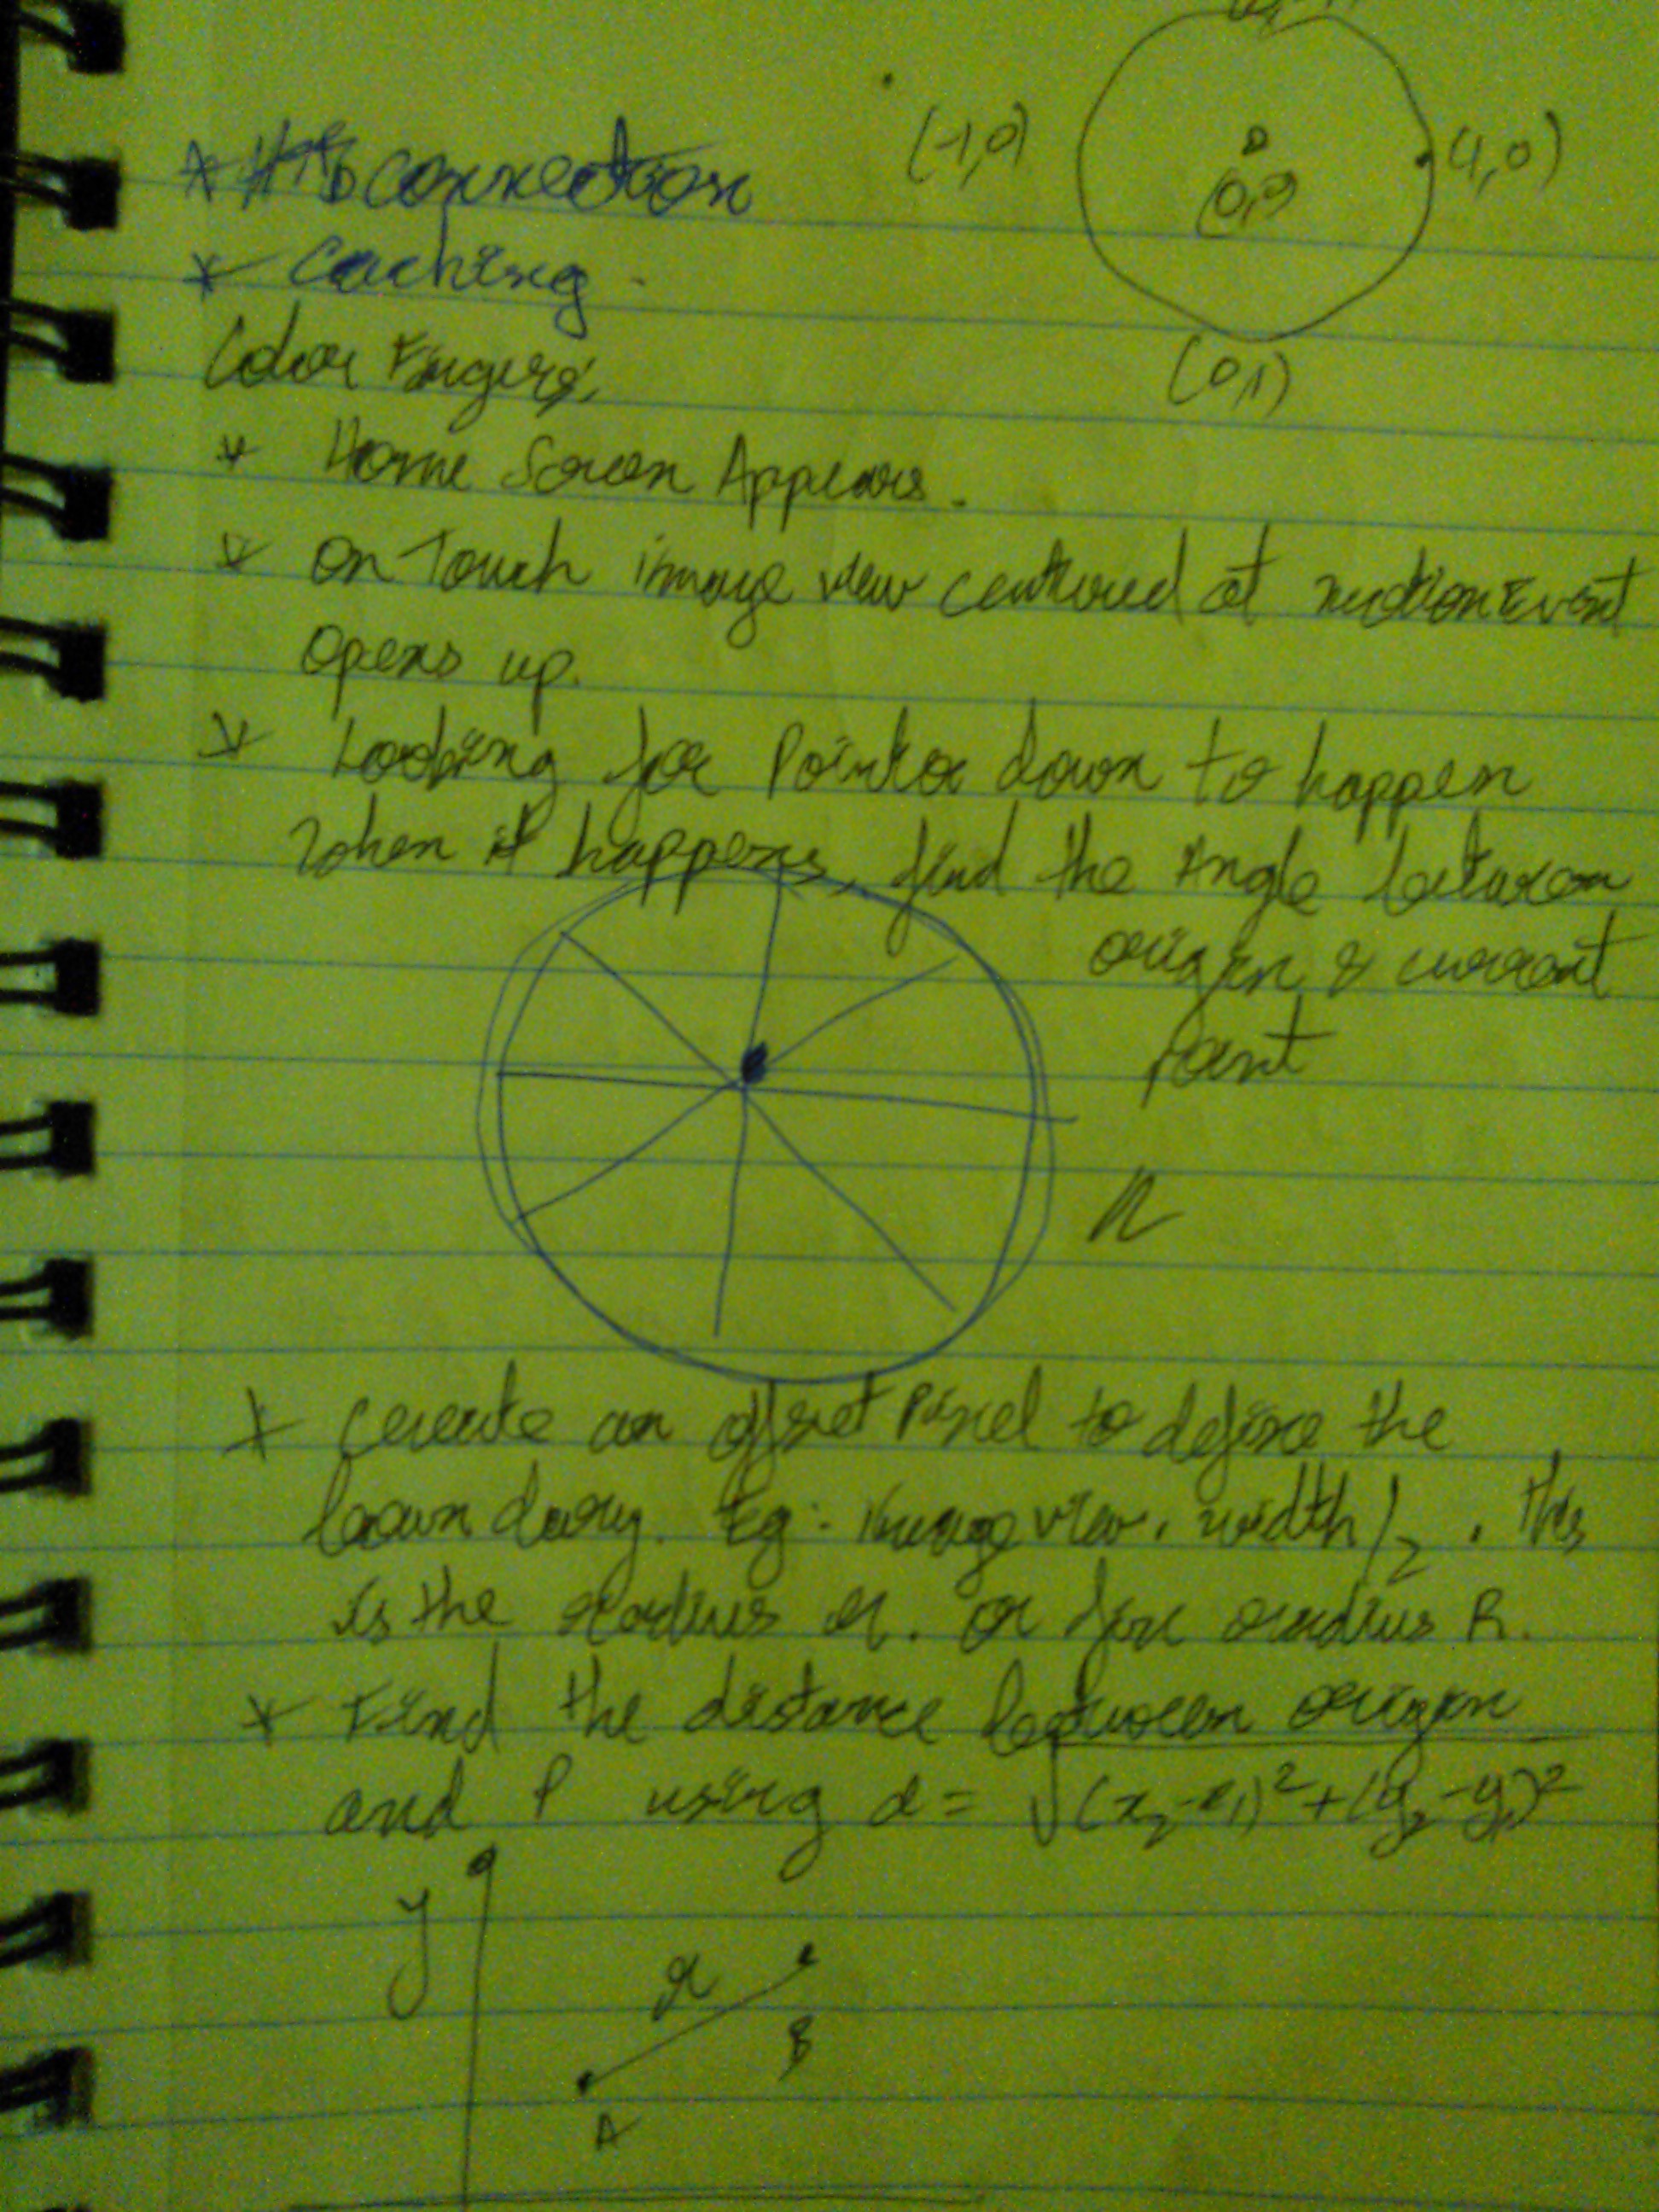 (-1,0)
(1,0)
(0,0)
(0,1)
* Http connection
* Caching
Color Fingers:
* Home Screen Appears.
* on Touch image view centered at motionEvent
opens up.
* Looking for Pointer down to happen
when it happens, find the Angle between
origin & current
point
r
* Create an offset Pixel to define the
boundary. Eg: imageview.width/2. This
is the radius r. or fix radius R.
* Find the distance between origin
and P using d = √(x₂-x₁)²+(y₂-y₁)²
y
r
B
A